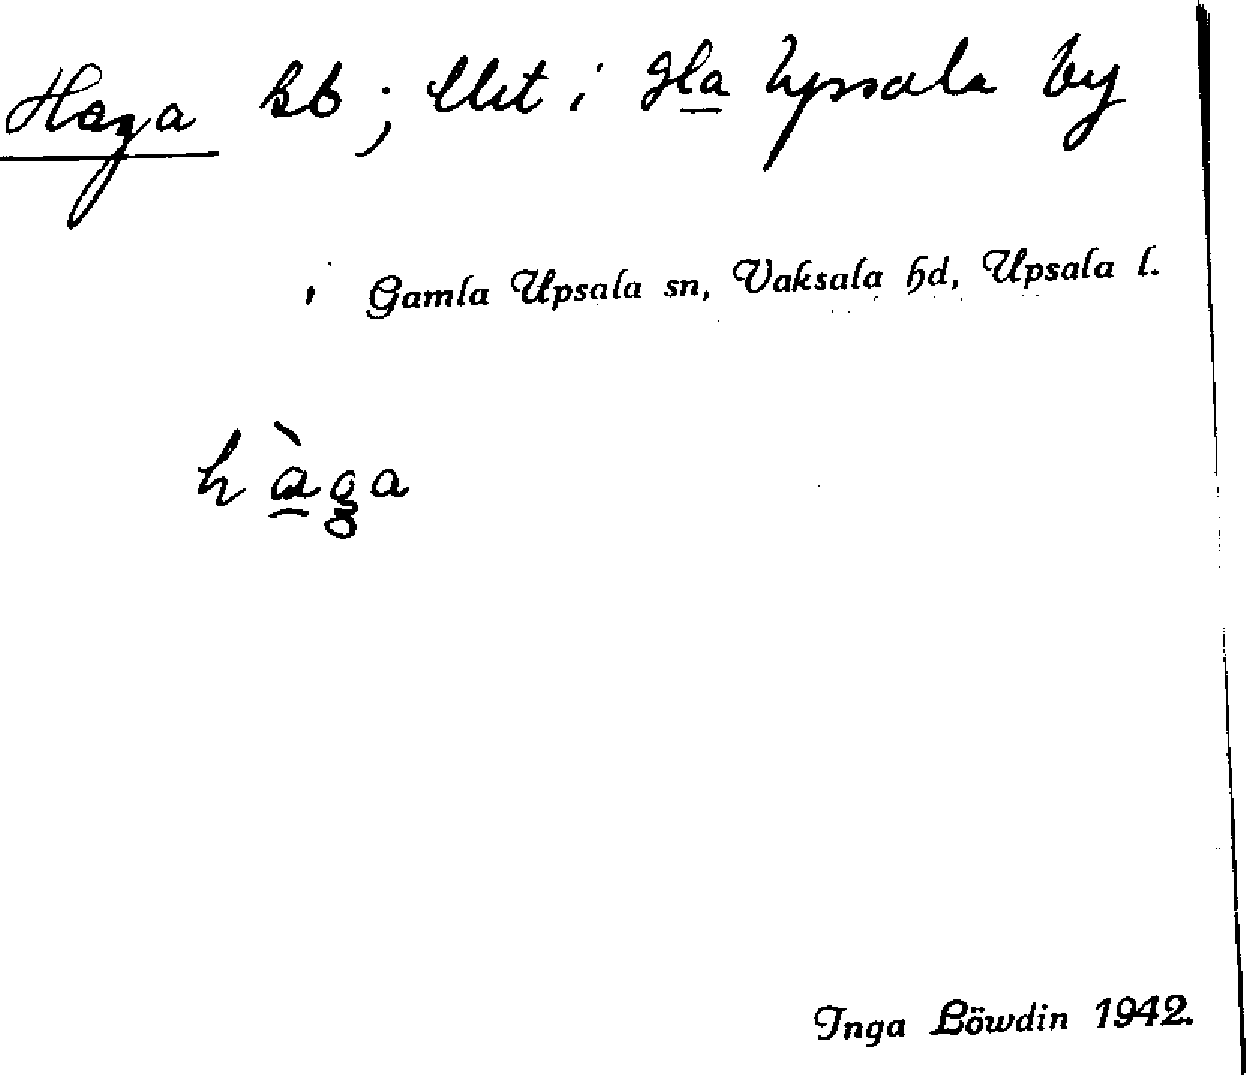 Haga bb; llet i Gla Upsala by
Gamla Upsala sn, Vaksala hd, Upsala l.
hàga
Inga Löwdin 1942.